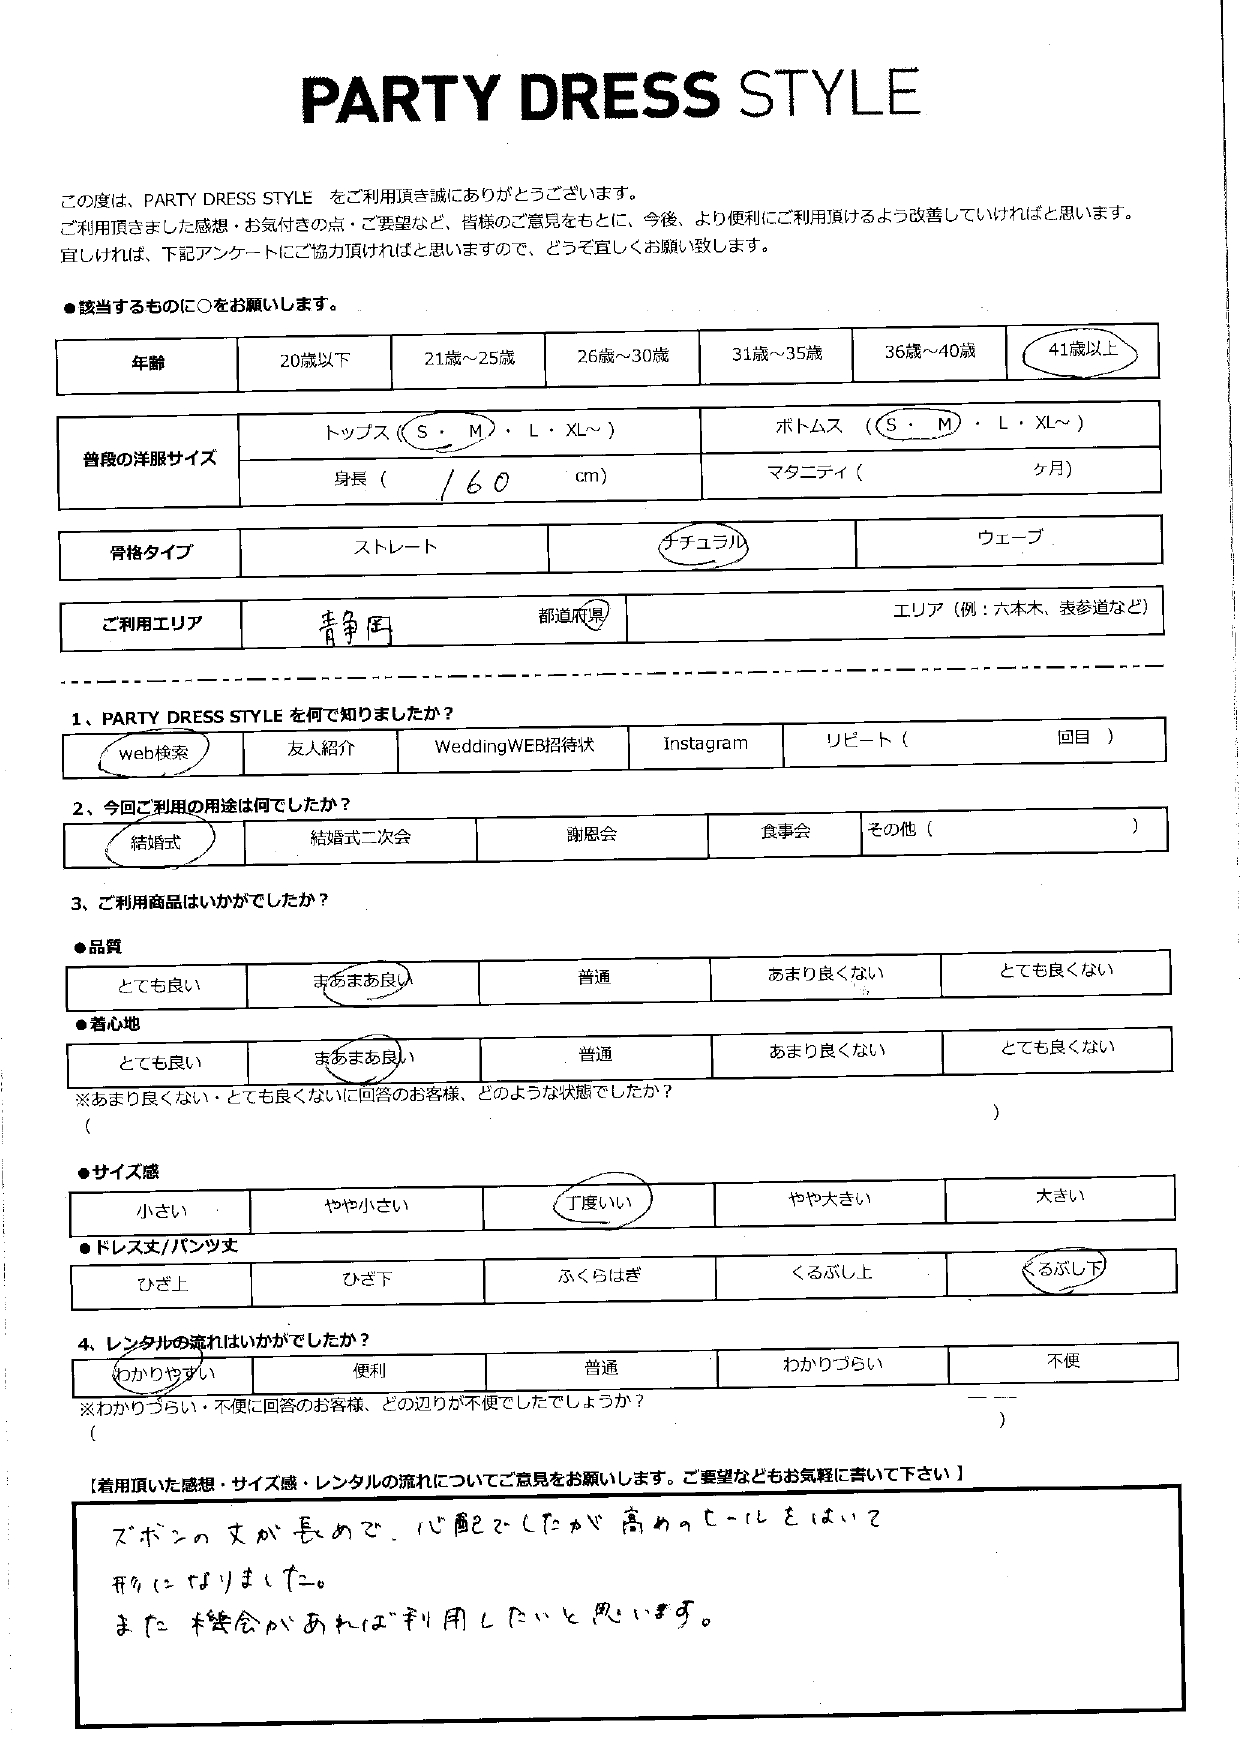 PARTY DRESS STYLE
この度は、PARTY DRESS STYLE をご利用頂き誠にありがとうございます。
ご利用頂きました感想・お気付きの点・ご要望など、皆様のご意見をもとに、今後、より便利にご利用頂けるよう改善していければと思います。
宜しければ、下記アンケートにご協力頂ければと思いますので、どうぞ宜しくお願い致します。
●該当するものに○をお願いします。
年齢 20歳以下 21歳～25歳 26歳～30歳 31歳～35歳 36歳～40歳 41歳以上
普段の洋服サイズ
トップス（S・ M・ L・ XL～） ボトムス （S・ M ・ L・ XL～）
身長（ 160 cm） マタニティ（ ケ月）
骨格タイプ ストレート ナチュラル ウェーブ
ご利用エリア 静岡 都道府県 エリア（例：六本木、表参道など）
1、PARTY DRESS STYLE を何で知りましたか？
web検索 友人紹介 WeddingWEB招待状 Instagram リピート（ 回目 ）
2、今回ご利用の用途は何でしたか？
結婚式 結婚式二次会 謝恩会 食事会 その他（ ）
3、ご利用商品はいかがでしたか？
●品質
とても良い まあまあ良い 普通 あまり良くない とても良くない
●着心地
とても良い まあまあ良い 普通 あまり良くない とても良くない
※あまり良くない・とても良くないに回答のお客様、どのような状態でしたか？
（ ）
●サイズ感
小さい やや小さい 丁度いい やや大きい 大きい
●ドレス丈/パンツ丈
ひざ上 ひざ下 ふくらはぎ くるぶし上 くるぶし下
4、レンタルの流れはいかがでしたか？
わかりやすい 便利 普通 わかりづらい 不便
※わかりづらい・不便に回答のお客様、どの辺りが不便でしたでしょうか？
（ ）
【着用頂いた感想・サイズ感・レンタルの流れについてご意見をお願いします。ご要望などもお気軽に書いて下さい 】
ズボンの丈が長めで、心配でしたが高めのヒールをはいて
形になりました。
また機会があれば利用したいと思います。